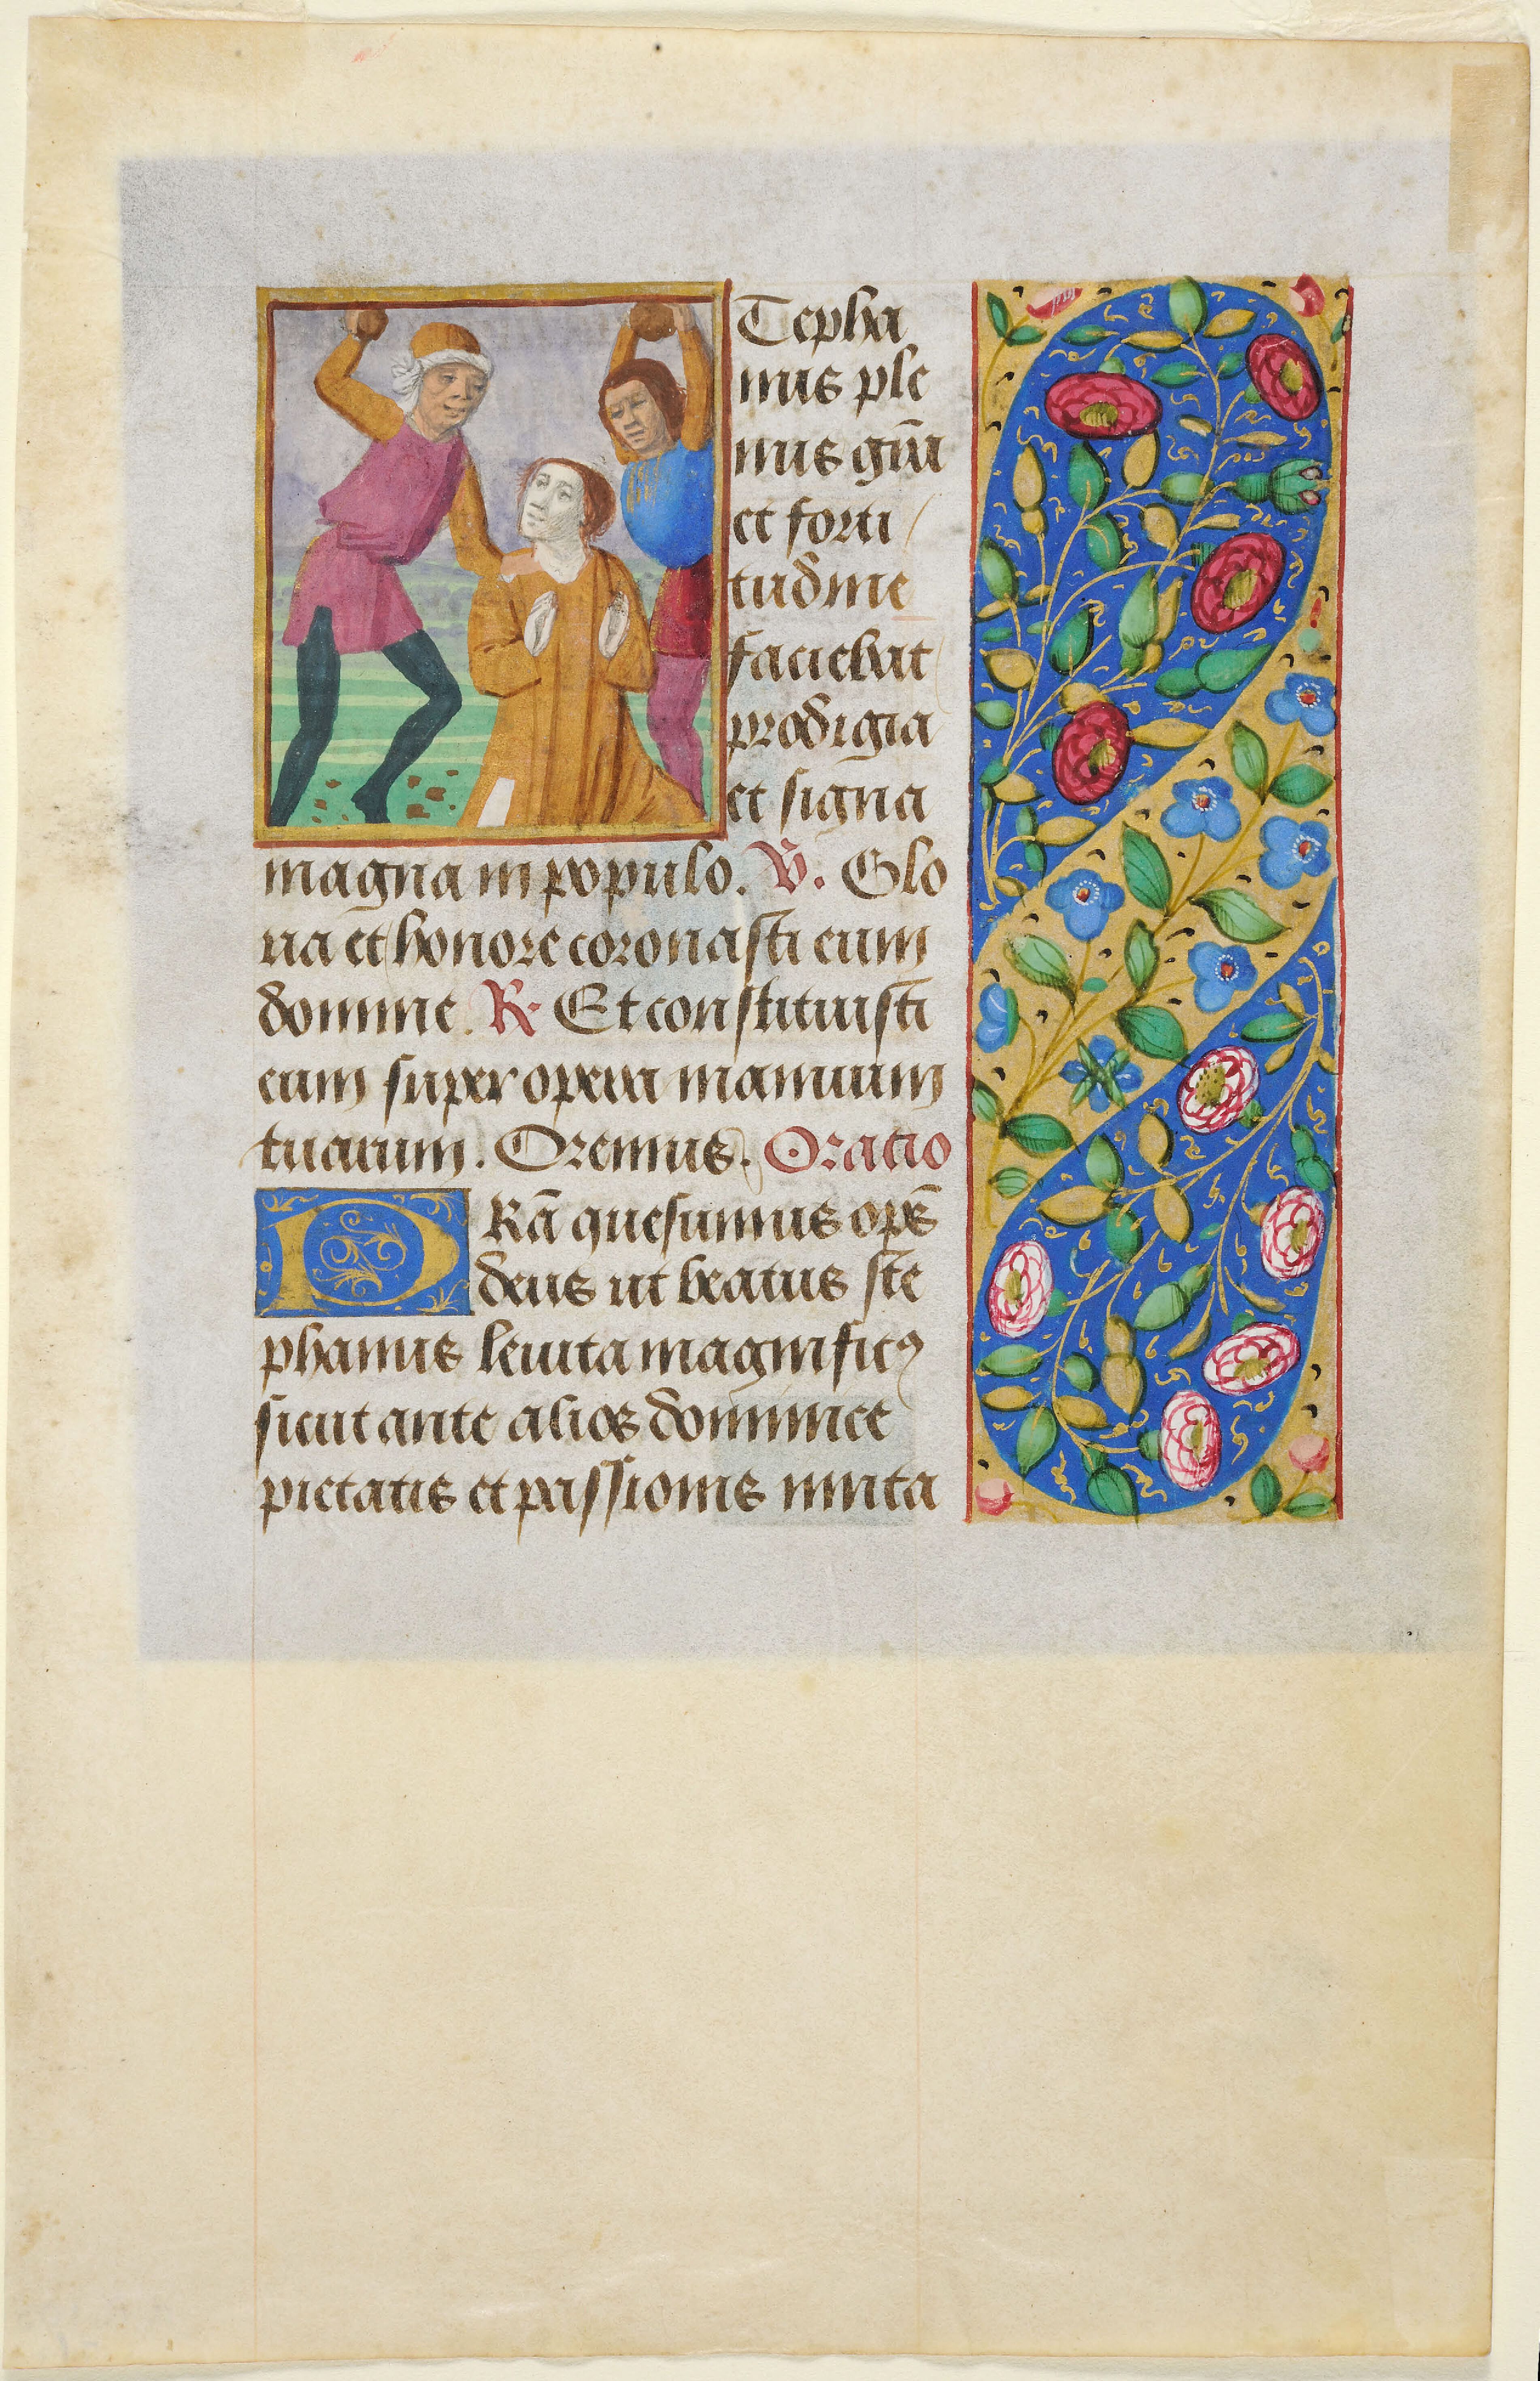 Tepha
nus ple
nus grã
et forti
tudine
faciebat
prodigia
et signa
magna in populo. V. Glo
ria et honore coronasti eum
domine. R. Et constituisti
eum super opera manuum
tuarum. Oremus. Oratio
DRã quesumus opẽ
deus ut beatus ste
phanus levita magnificꝯ
sicut ante alios dominice
pietatis et passionis imita